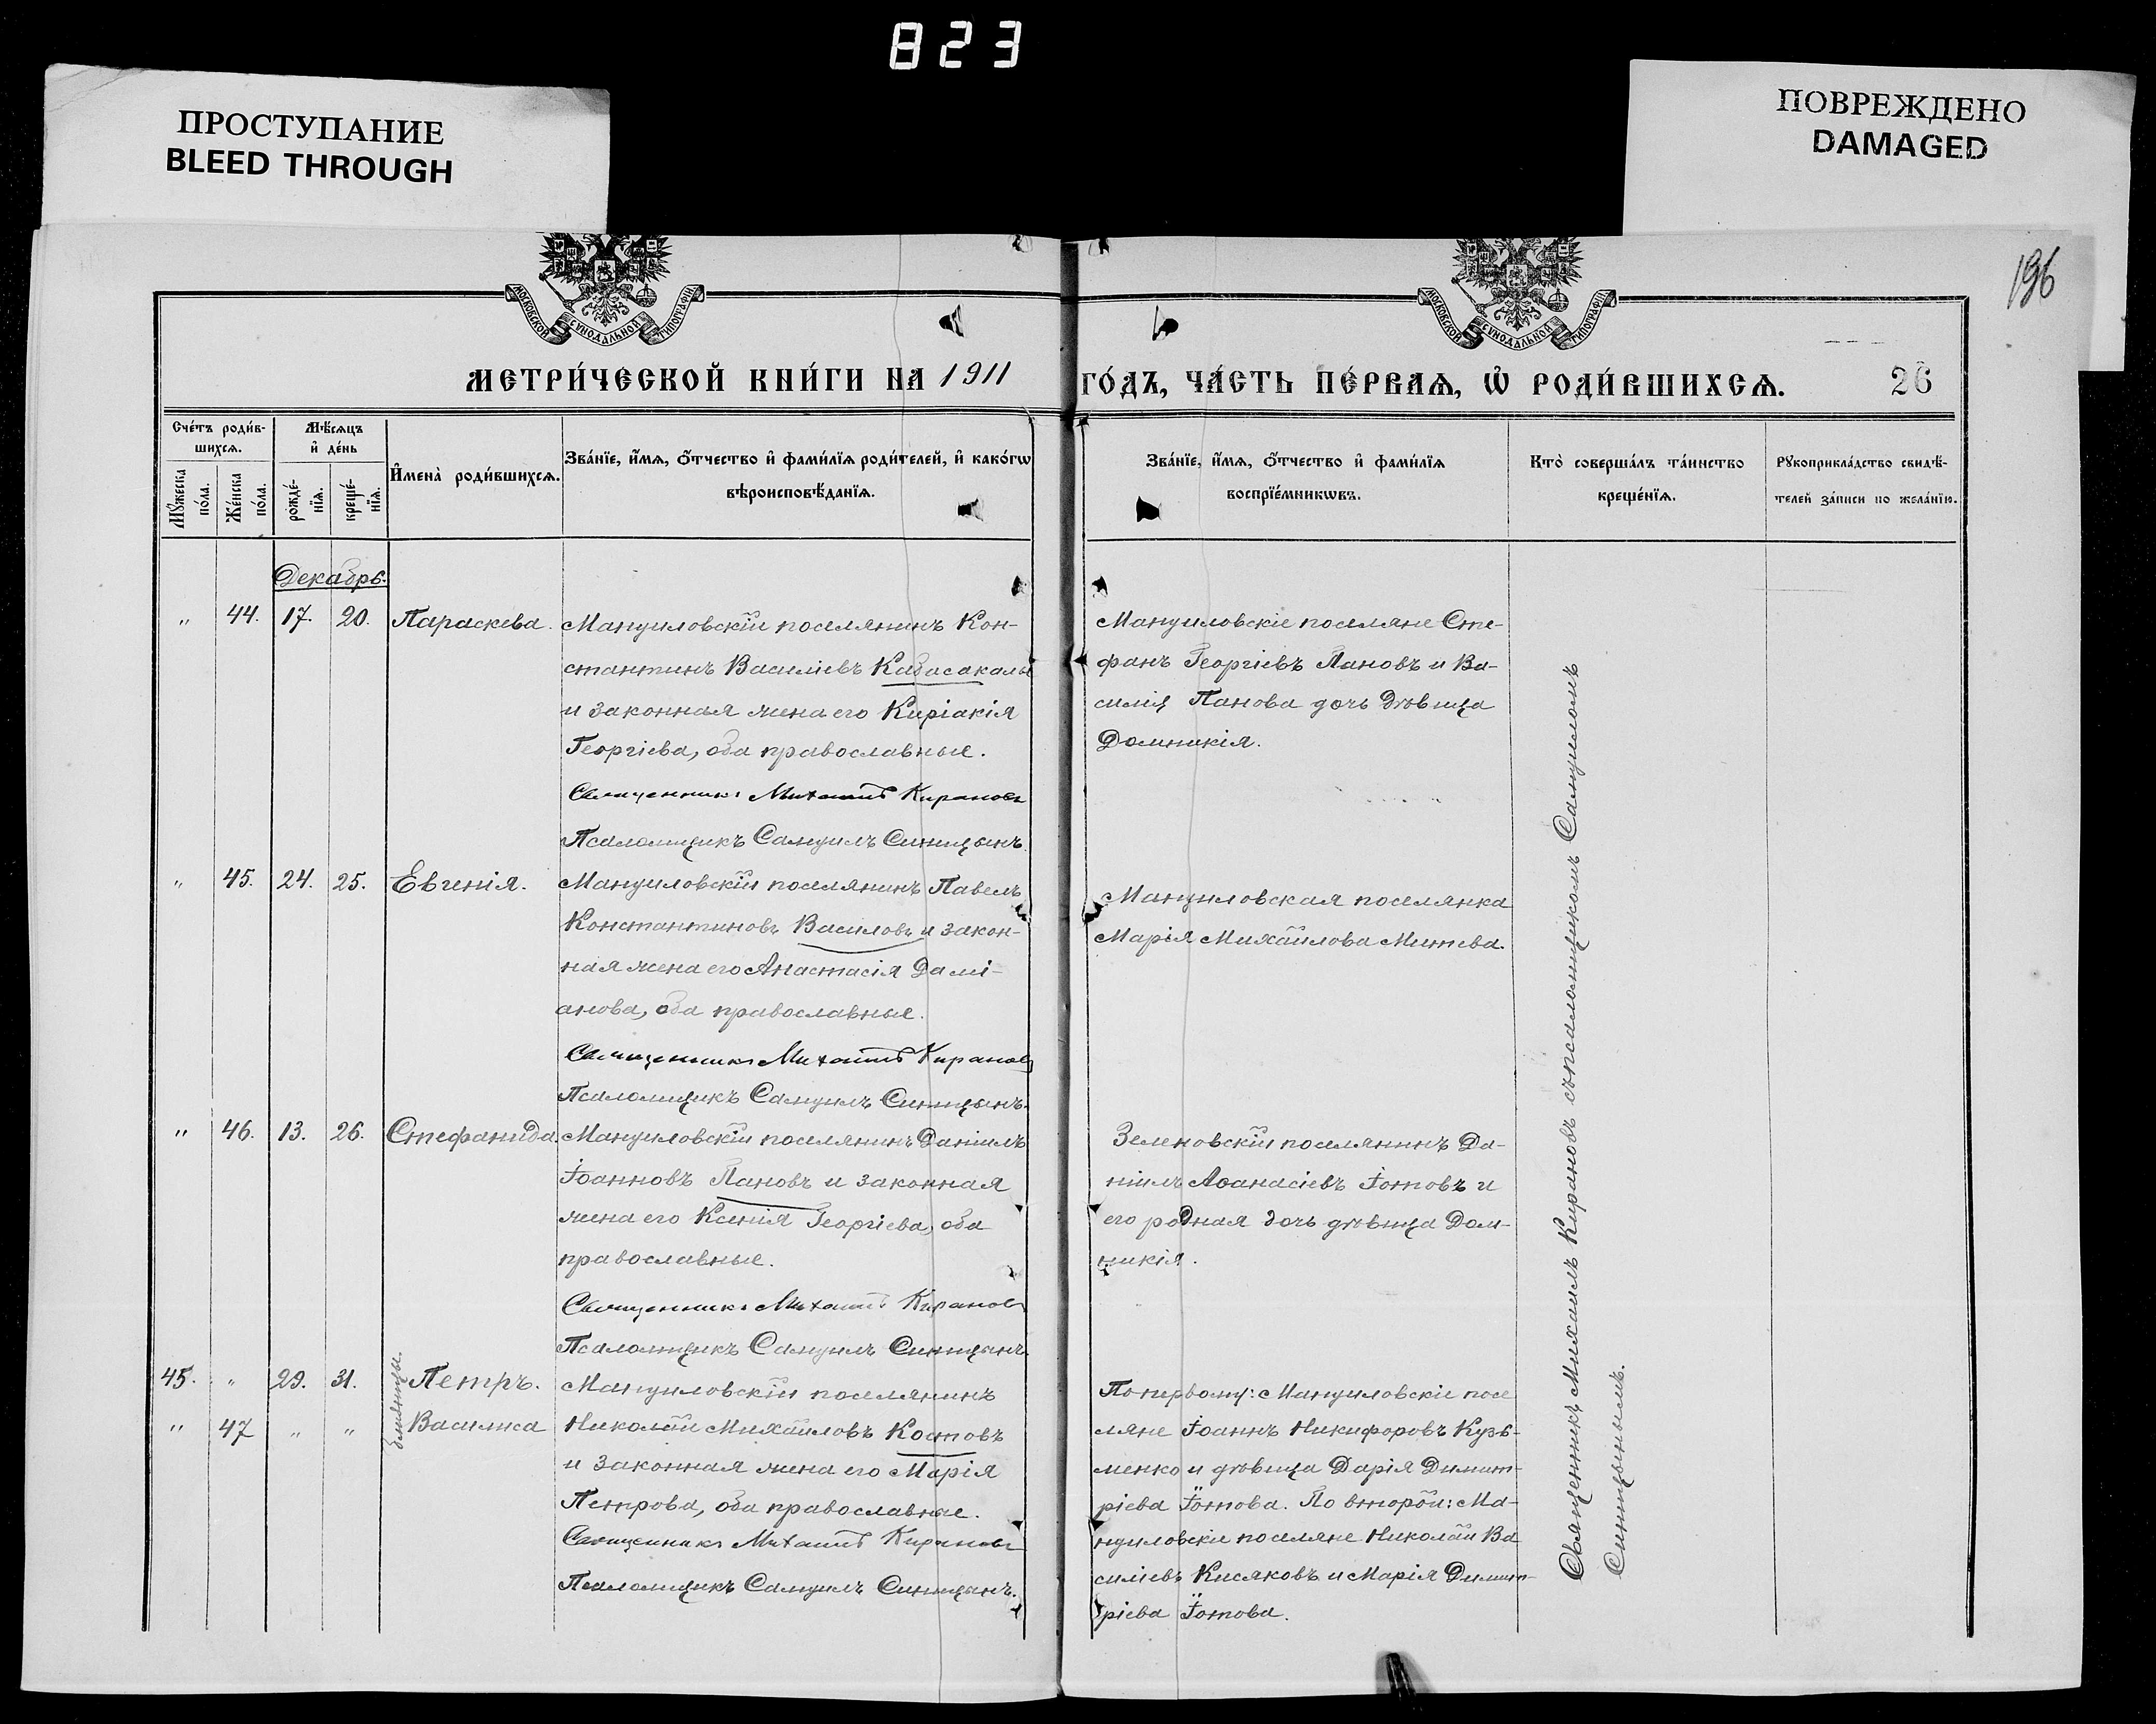 823
ПРОСТУПАНИЕ
BLEED THROUGH
ПОВРЕЖДЕНО
DAMAGED
196
МОСКОВСКОЙ СѴНОДАЛЬНОЙ ТИПОГРАФІИ
МОСКОВСКОЙ СѴНОДАЛЬНОЙ ТИПОГРАФІИ
МЕТРИ́ЧЕСКОЙ КНИ́ГИ НА 1911
ГО́ДЪ, ЧА́СТЬ ПЕ́РВАѦ, Ѡ҆ РОДИ́ВШИХСѦ. 26
Сче́тъ роди́в-
шихсѧ.
Мѣ́сѧцъ
и҆ де́нь
Мꙋ́жеска
по́ла.
Же́нска
по́ла.
рожде́-
нїѧ.
креще́-
нїѧ.
И҆мена̀ роди́вшихсѧ.
Зва́нїе, и҆́мѧ, ѻ҆́тчество и҆ фами́лїѧ роди́телей, и҆ како́гѡ
вѣроисповѣ́данїѧ.
Зва́нїе, и҆́мѧ, ѻ҆́тчество и҆ фами́лїѧ
воспрїе́мникѡвъ.
Кто̀ соверша́лъ та́инство
креще́нїѧ.
Рꙋкоприкла́дство свидѣ́-
телей за́писи по жела́нїю.
Декабрь.
„ 44. 17. 20. Параскева.
Мануиловскій поселянинъ Кон-
стантинъ Василіевъ Кабасакалъ
и законная жена его Киріакія
Георгіева, оба православные.
Священникъ Михаилъ Кирановъ
Псаломщикъ Самуилъ Синицынъ.
Мануиловскіе поселяне Сте-
фанъ Георгіевъ Пановъ и Ва-
силія Панова дочь дѣвица
Домникія.
„ 45. 24. 25. Евгенія.
Мануиловскій поселянинъ Павелъ
Константиновъ Василовъ и закон-
ная жена его Анастасія Дамі-
анова, оба православные.
Священникъ Михаилъ Кирановъ
Псаломщикъ Самуилъ Синицынъ.
Мануиловская поселянка
Марія Михайлова Митева.
„ 46. 13. 26. Стефанида.
Мануиловскій поселянинъ Даніилъ
Іоанновъ Пановъ и законная
жена его Ксенія Георгіева, оба
православные.
Священникъ Михаилъ Кирановъ
Псаломщикъ Самуилъ Синицынъ.
Зеленовскій поселянинъ Да-
ніилъ Аѳанасіевъ Іотовъ и
его родная дочь дѣвица Дом-
никія.
45. „ 29. 31. Петръ.
„ 47 „ „ Василиса
близнецы.
Мануиловскій поселянинъ
Николай Михайловъ Костовъ
и законная жена его Марія
Петрова, оба православные.
Священникъ Михаилъ Кирановъ
Псаломщикъ Самуилъ Синицынъ.
По первому: Мануиловскіе посе
ляне Іоаннъ Никифоровъ Кузь-
менко и дѣвица Дарія Димит-
ріева Іотова. По второй: Ма-
нуиловскіе поселяне Николай Ва
силіевъ Кисяковъ и Марія Димит-
ріева Іотова.
Священникъ Михаилъ Кирановъ съ псаломщикомъ Самуиломъ
Синицынымъ.